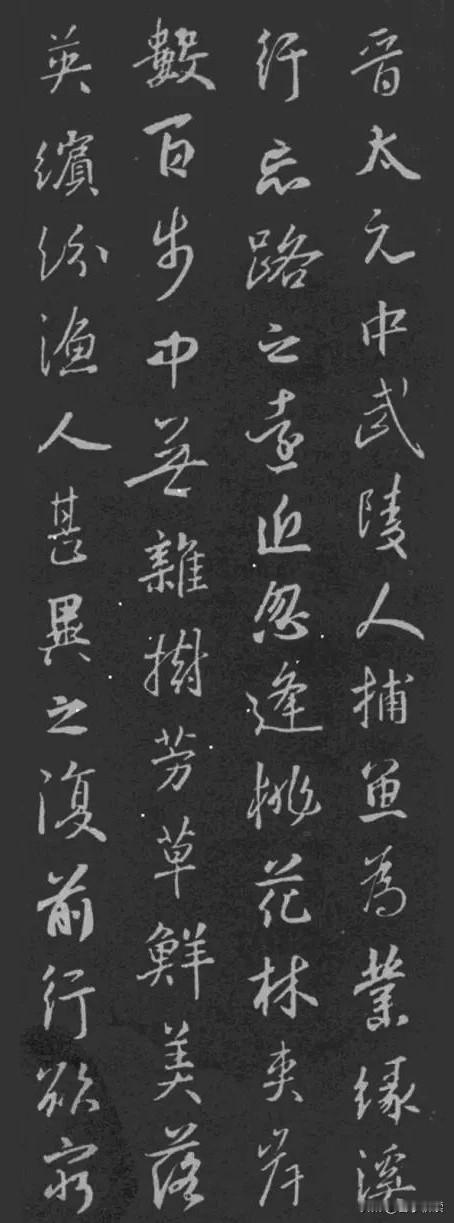 晋太元中武陵人捕魚為業緣溪
行忘路之遠近忽逢桃花林夹岸
數百步中無雜樹芳草鮮美落
英繽紛漁人甚異之復前行欲窮